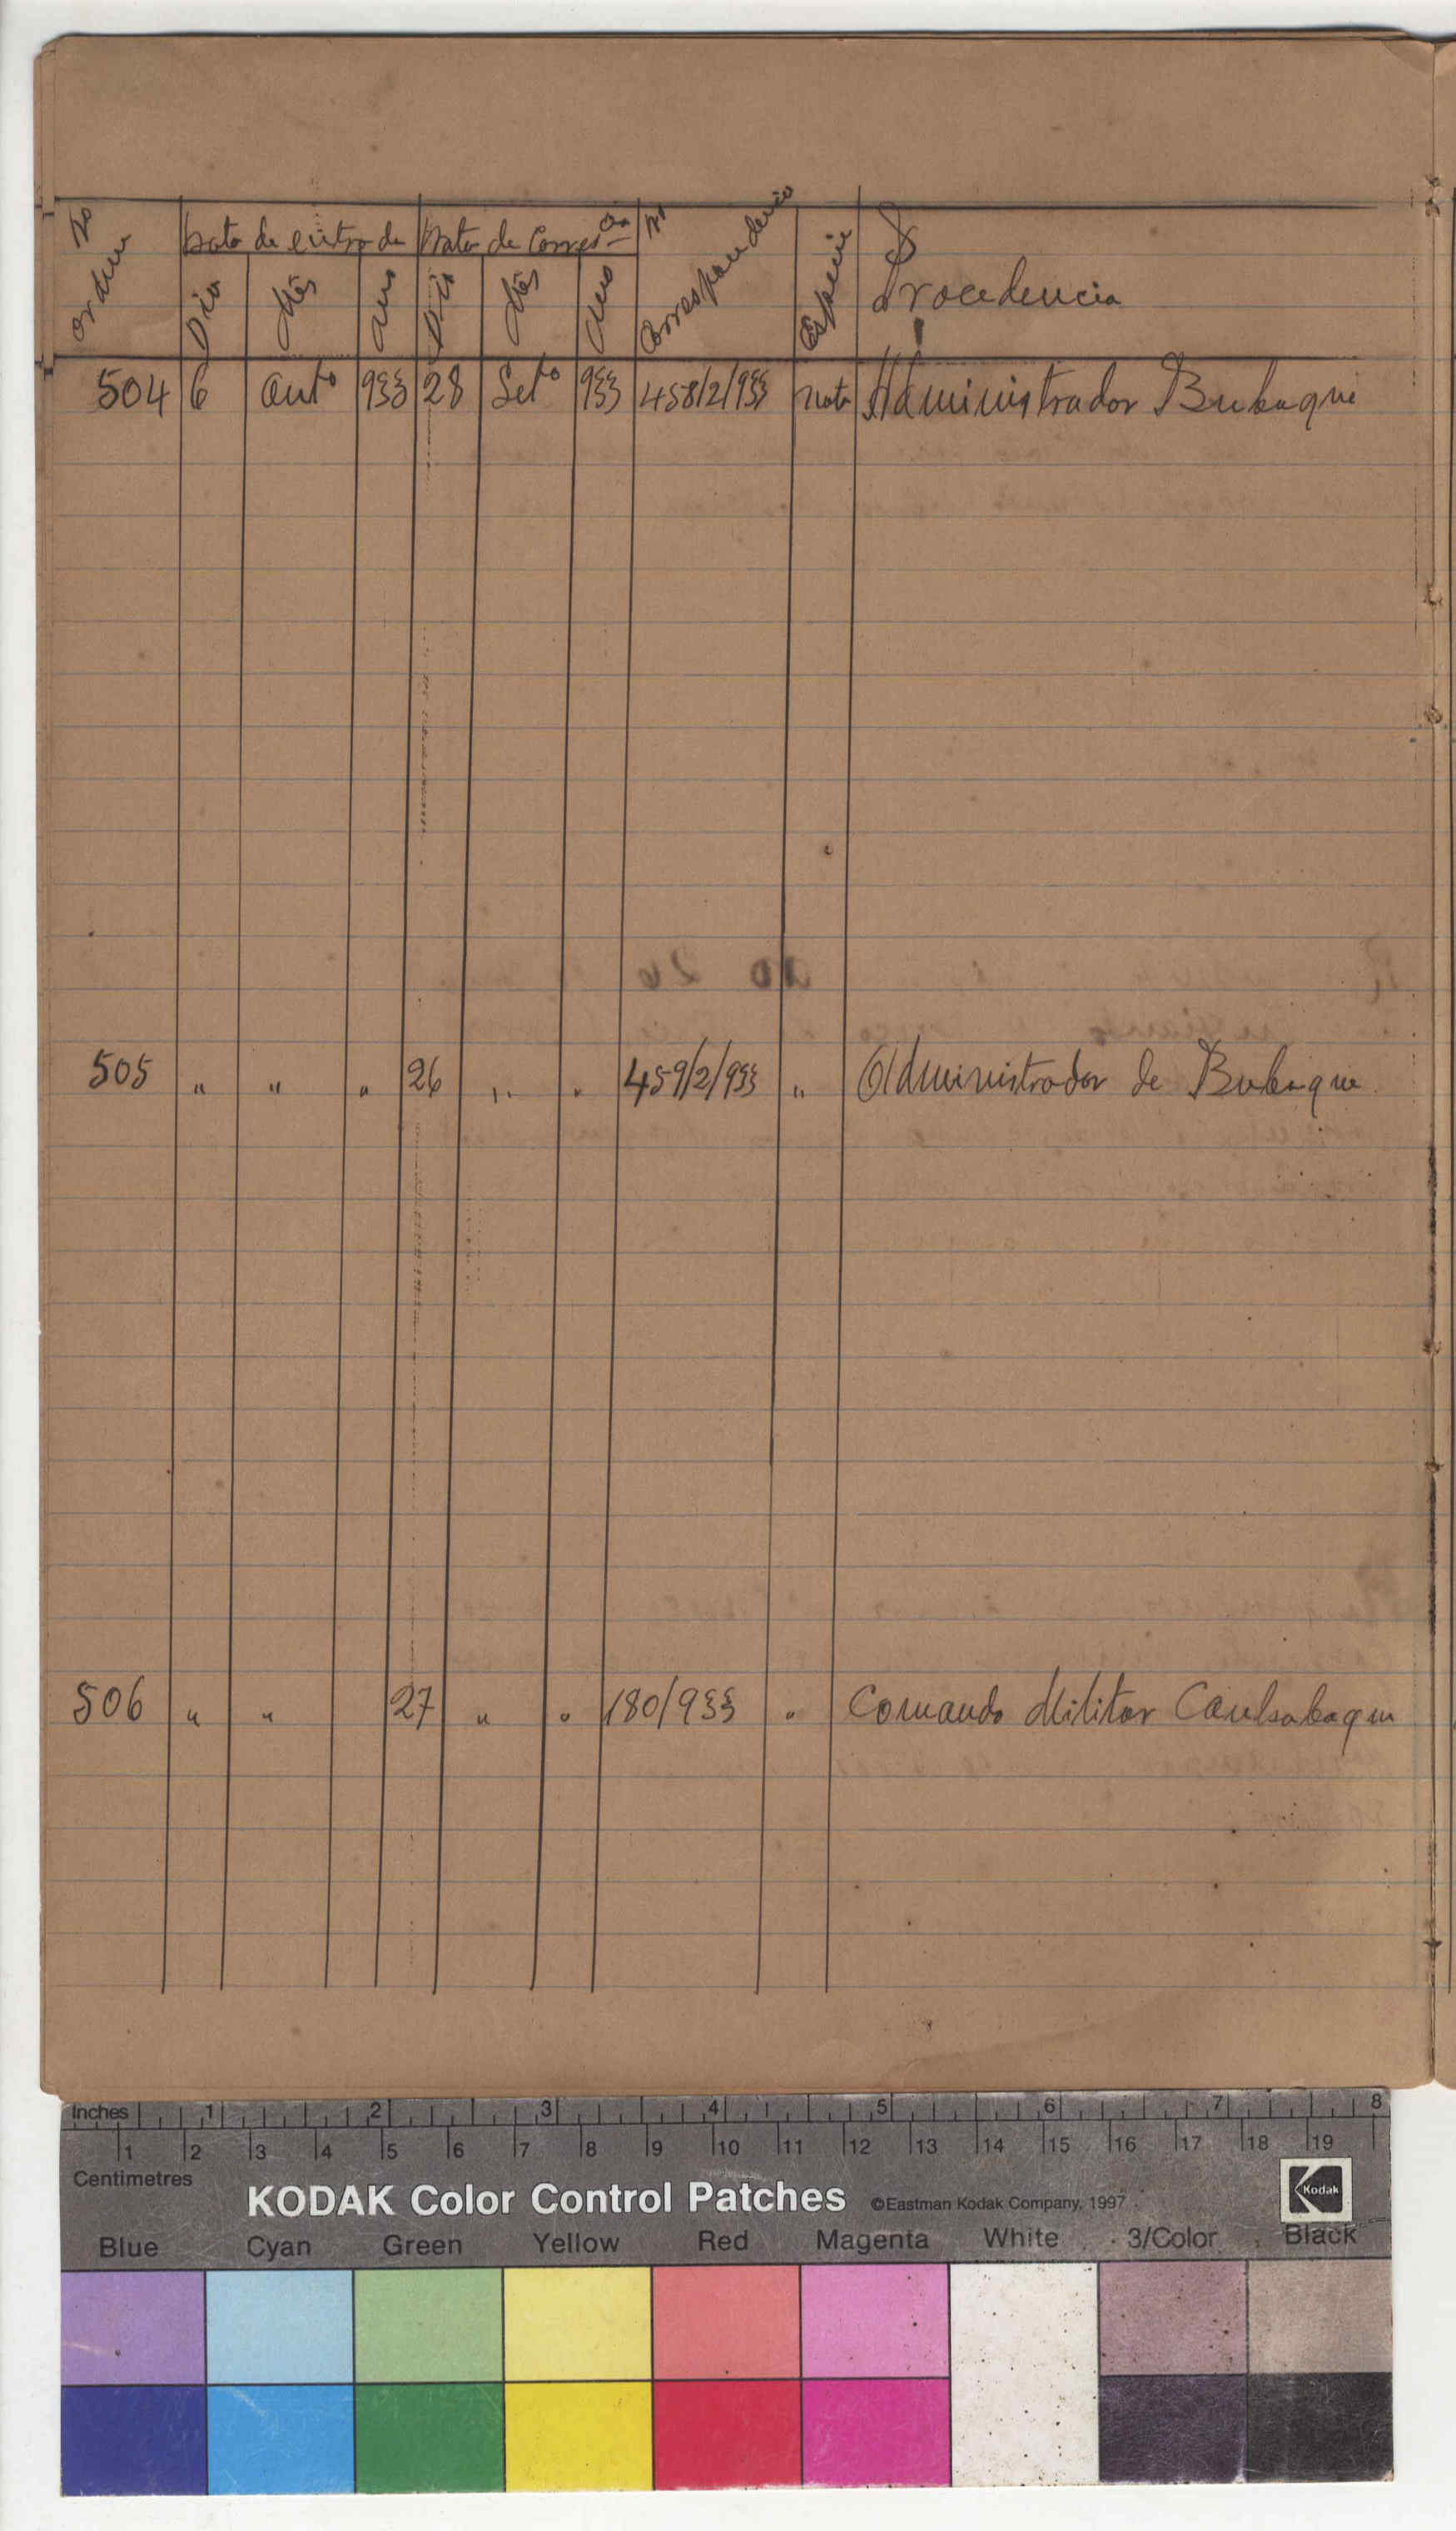 No ordem
Data de entrada
Data de Corres cia
No Correspondencia
Especie
Procedencia
Dia Mês Ano Dia Mês Ano
504 6 Outo 933 28 Seto 933 458/2/933 nota Administrador Bubaque
505 " " " 26 " " 459/2/933 " Administrador de Bubaque
506 " " 27 " " 180/933 " Comando Militar
Inches 1 2 3 4 5 6 7 8
1 2 3 4 5 6 7 8 9 10 11 12 13 14 15 16 17 18 19
Centimetres
KODAK Color Control Patches ©Eastman Kodak Company, 1997 Kodak
Blue Cyan Green Yellow Red Magenta White 3/Color Black